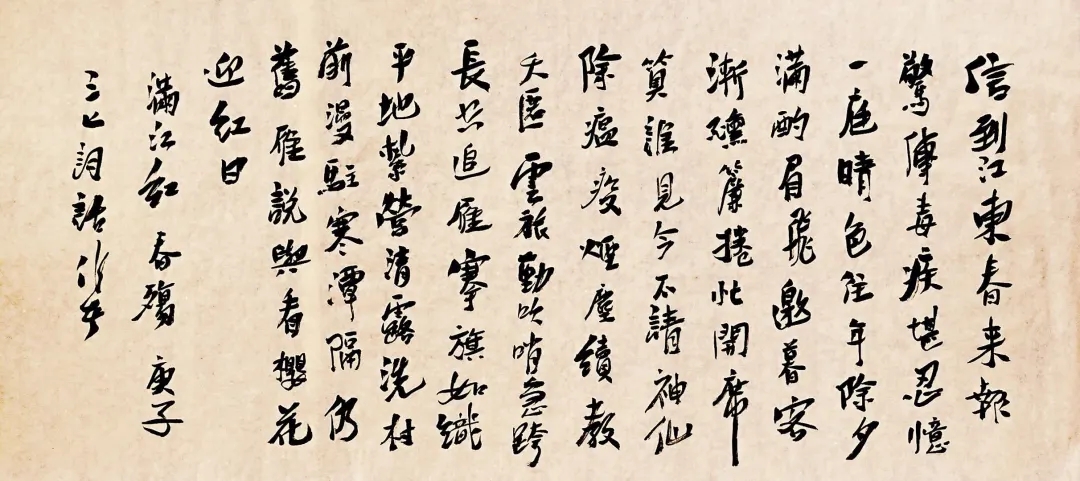 信到江東春来報
驚傳毒疾堪忍憶
一庭晴色往年除夕
滿酌眉飛邀暮客
漸曛簾捲忙開席
算誰見今不請神仙
除瘟疫煙塵續教
天匿雲旅動吹哨急跨
長追雁搴旗如織
平地紮營清露洗村
前漫駐寒潭隔仍
舊雁說與看櫻花
迎紅日
滿江紅 春殤 庚子
三七詞話作